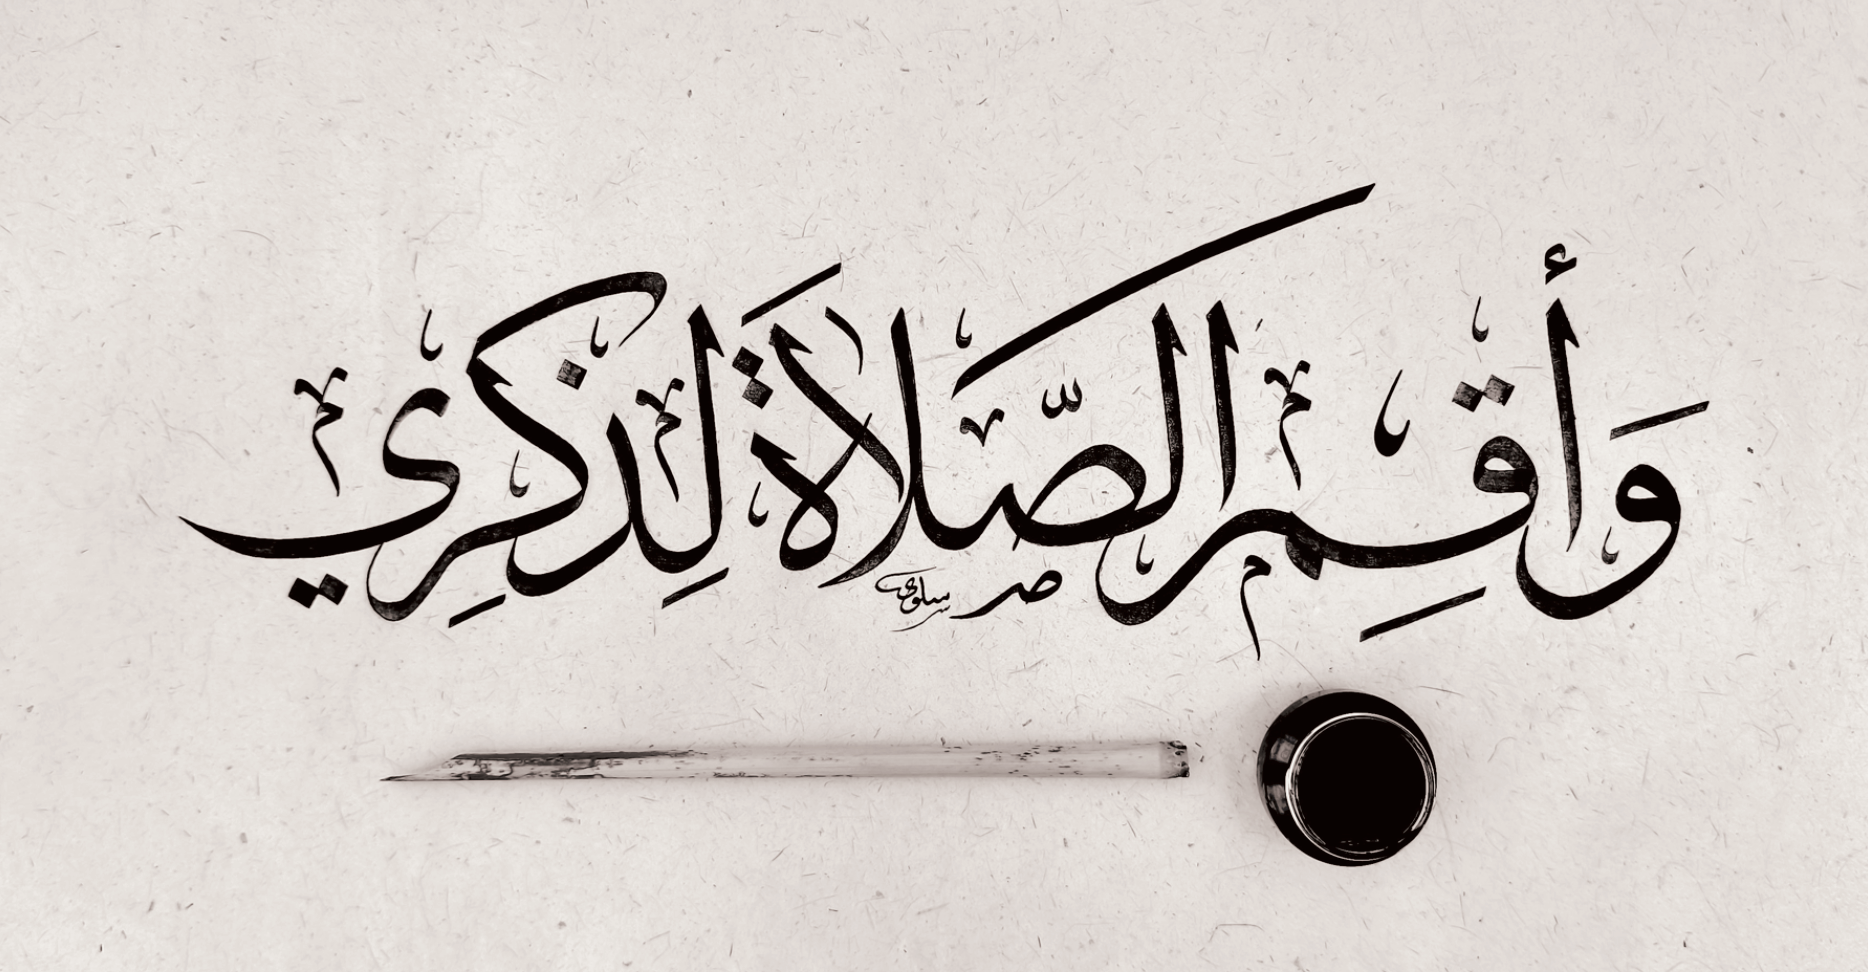 وَأَقِمِ الصَّلَاةَ لِذِكْرِي
سلوى